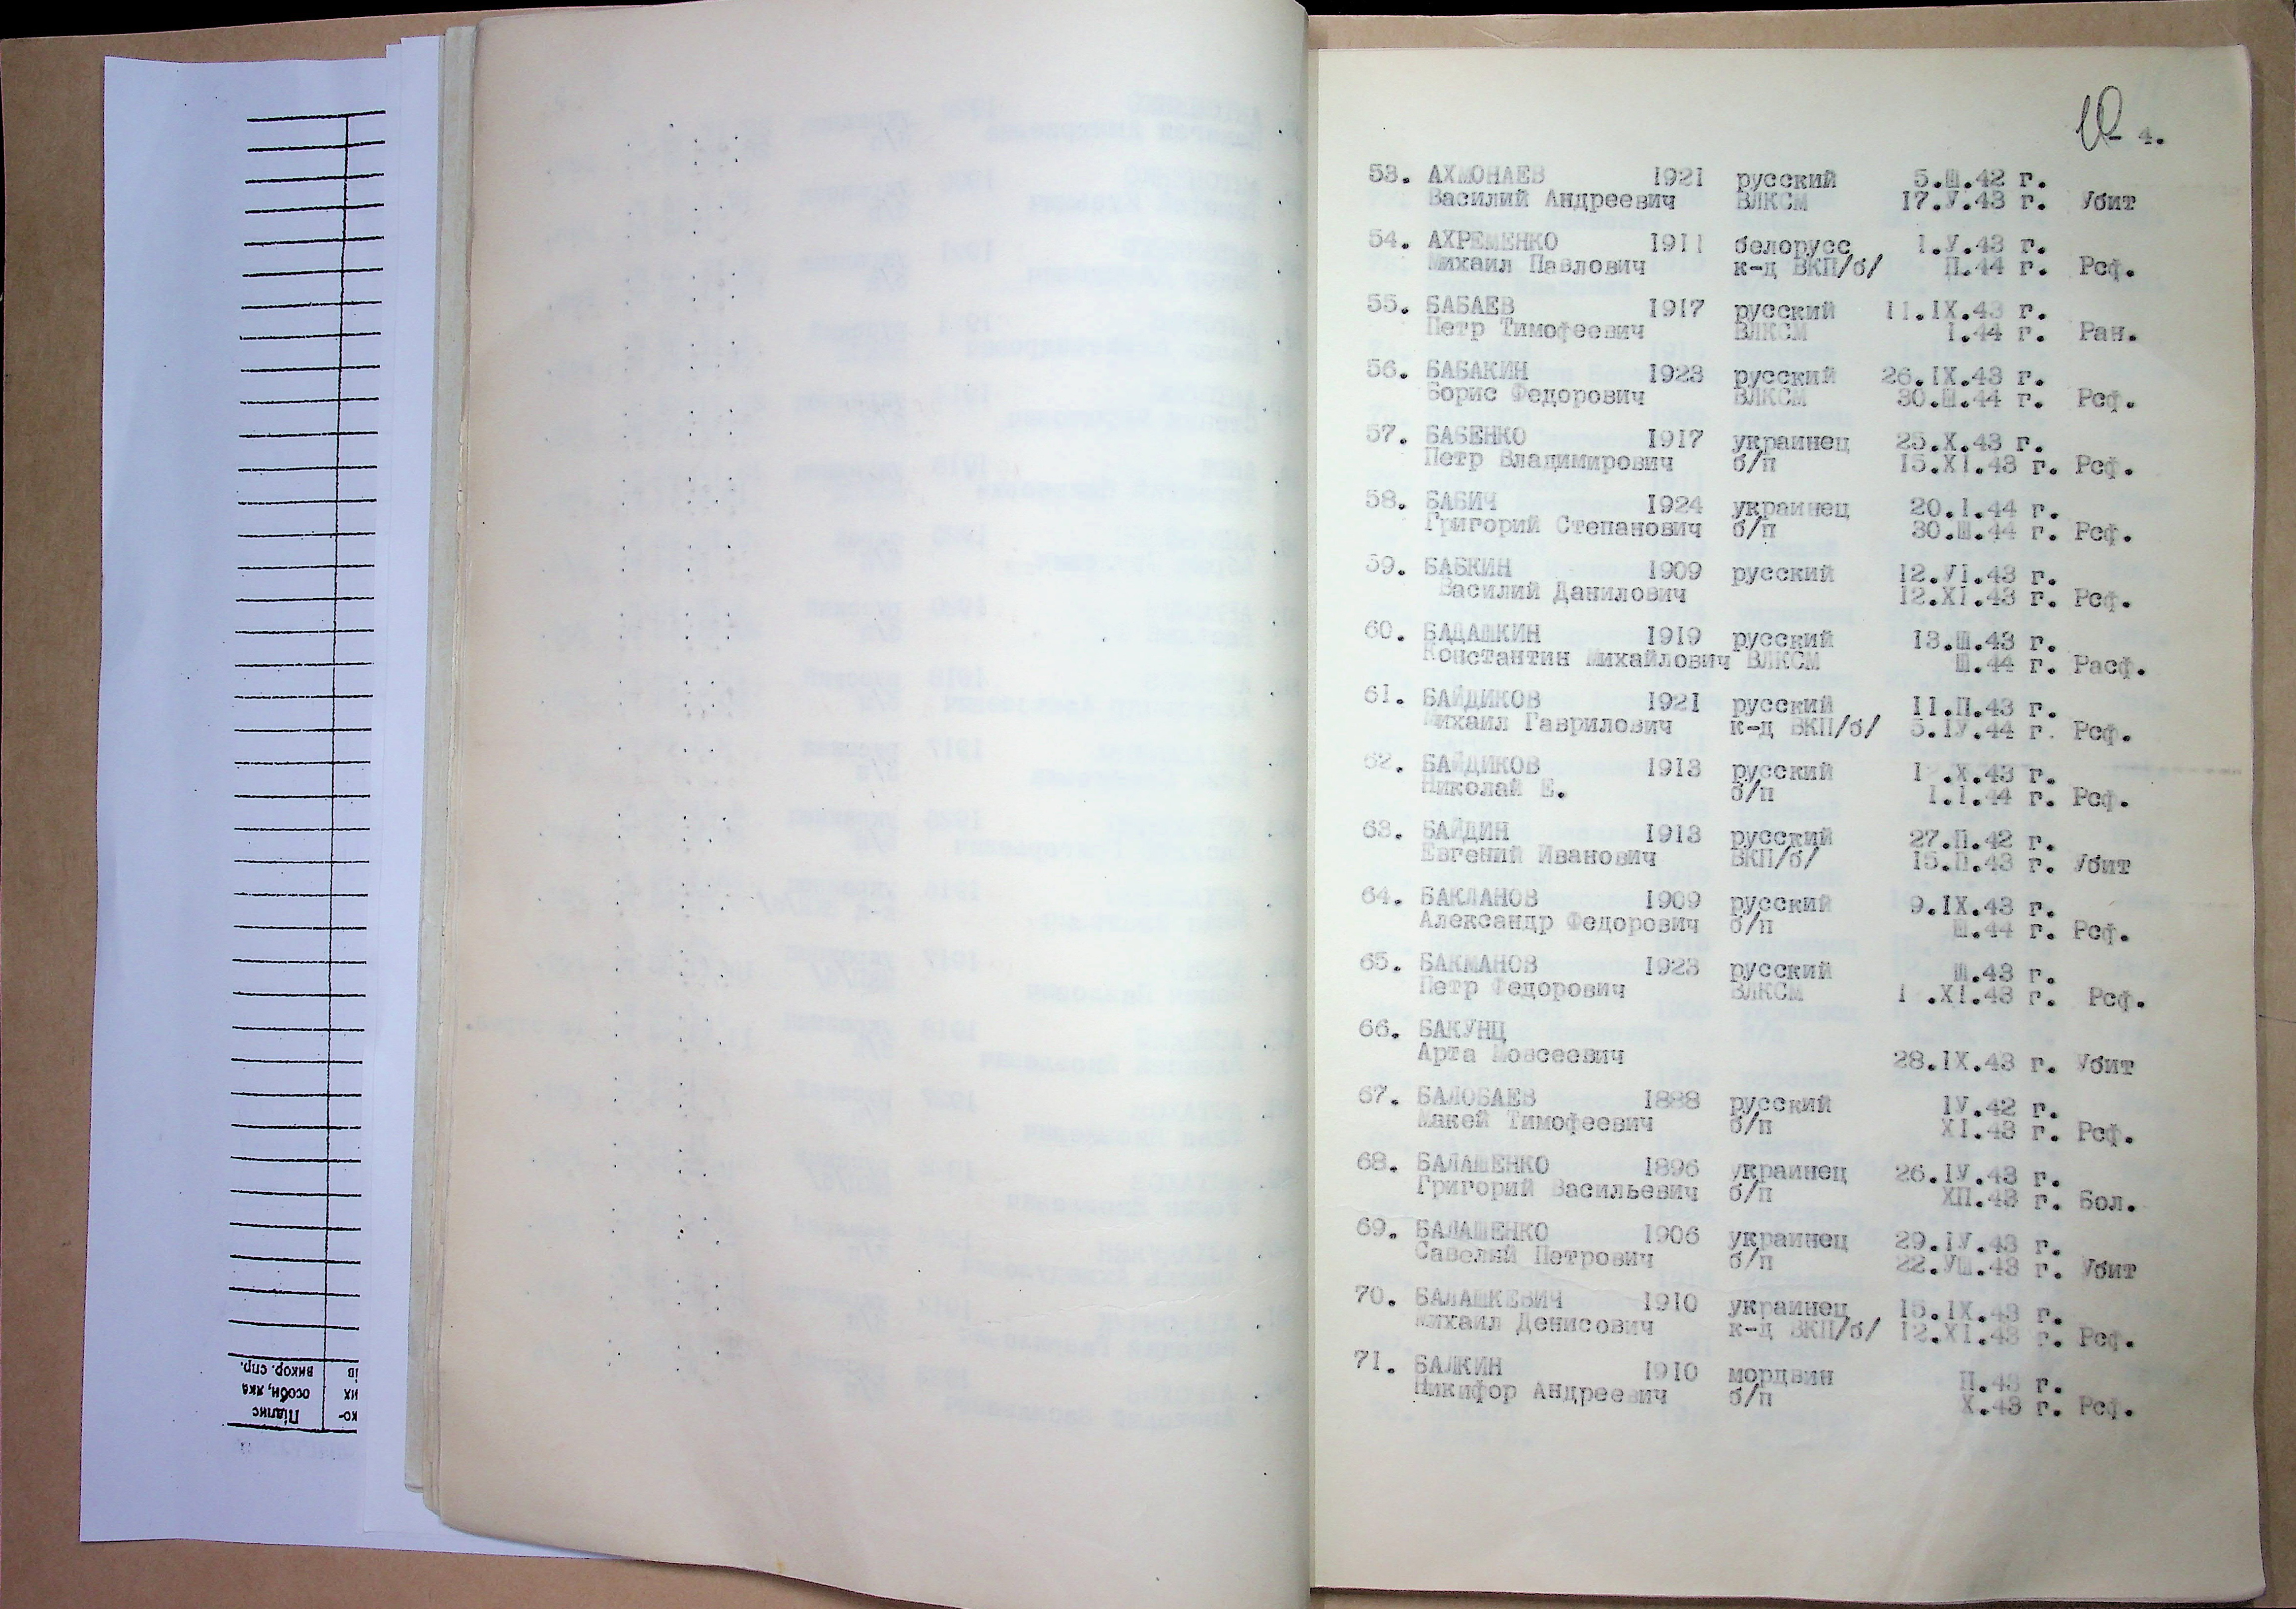 10 - 4.
53. АХМОНАЕВ 1921 русский 5.Ш.42 г.
Василий Андреевич ВЛКСМ 17.У.43 г. Убит
54. АХРЕМЕНКО 1911 белорусс 1.У.43 г.
Михаил Павлович к-д ВКП/б/ П.44 г. Рсф.
55. БАБАЕВ 1917 русский 11.IX.43 г.
Петр Тимофеевич ВЛКСМ 1.44 г. Ран.
56. БАБАКИН 1923 русский 26.IX.43 г.
Борис Федорович ВЛКСМ 30.Ш.44 г. Рсф.
57. БАБЕНКО 1917 украинец 25.X.43 г.
Петр Владимирович б/п 15.XI.43 г. Рсф.
58. БАБИЧ 1924 украинец 20.1.44 г.
Григорий Степанович б/п 30.Ш.44 г. Рсф.
59. БАБКИН 1909 русский 12.УI.43 г.
Василий Данилович 12.XI.43 г. Рсф.
60. БАДАШКИН 1919 русский 13.Ш.43 г.
Константин Михайлович ВЛКСМ Ш.44 г. Расф.
61. БАЙДИКОВ 1921 русский 11.П.43 г.
Михаил Гаврилович к-д ВКП/б/ 5.IУ.44 г. Рсф.
62. БАЙДИКОВ 1913 русский 1 .X.43 г.
Николай Е. б/п 1.1.44 г. Рсф.
63. БАЙДИН 1913 русский 27.П.42 г.
Евгений Иванович ВКП/б/ 15.П.43 г. Убит
64. БАКЛАНОВ 1909 русский 9.IX.43 г.
Александр Федорович б/п Ш.44 г. Рсф.
65. БАКМАНОВ 1923 русский Ш.43 г.
Петр Федорович ВЛКСМ 1 .XI.43 г. Рсф.
66. БАКУНЦ
Арта Мовсеевич 28.IX.43 г. Убит
67. БАЛОБАЕВ 1888 русский IУ.42 г.
Макей Тимофеевич б/п XI.43 г. Рсф.
68. БАЛАШЕНКО 1896 украинец 26.IУ.43 г.
Григорий Васильевич б/п ХП.43 г. Бол.
69. БАЛАШЕНКО 1906 украинец 29.IУ.43 г.
Савелий Петрович б/п 22.УШ.43 г. Убит
70. БАЛАШКЕВИЧ 1910 украинец 15.IX.43 г.
Михаил Денисович к-д ВКП/б/ 12.XI.43 г. Рсф.
71. БАЛКИН 1910 мордвин П.43 г.
Никифор Андреевич б/п X.43 г. Рсф.
ко-
их
ів
Підпис
особи, яка
викор. спр.